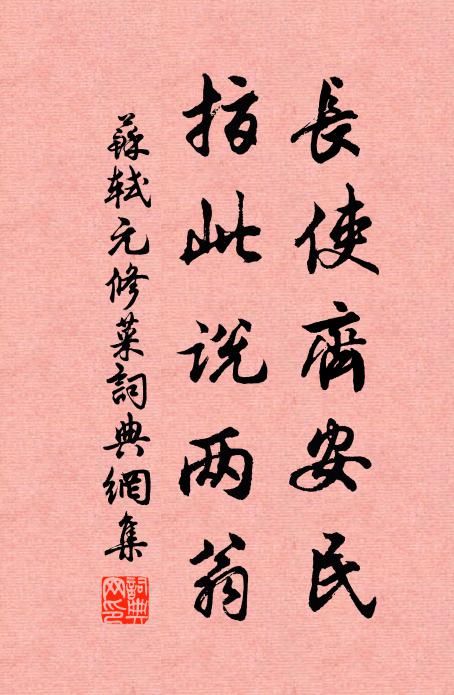 長使齊安民
指此說两翁
蘇軾元修菜詞典網集
詞典
网印